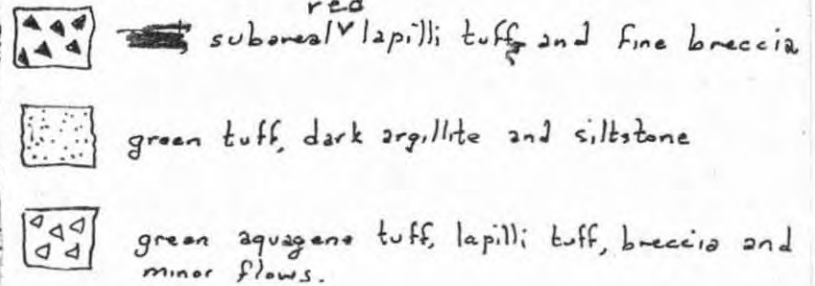 red
subareal ˅ lapilli tuff, and fine breccia
green tuff, dark argillite and siltstone
green aquagene tuff, lapilli tuff, breccia and
minor flows.